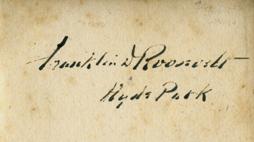 Franklin D Roosevelt
Hyde Park